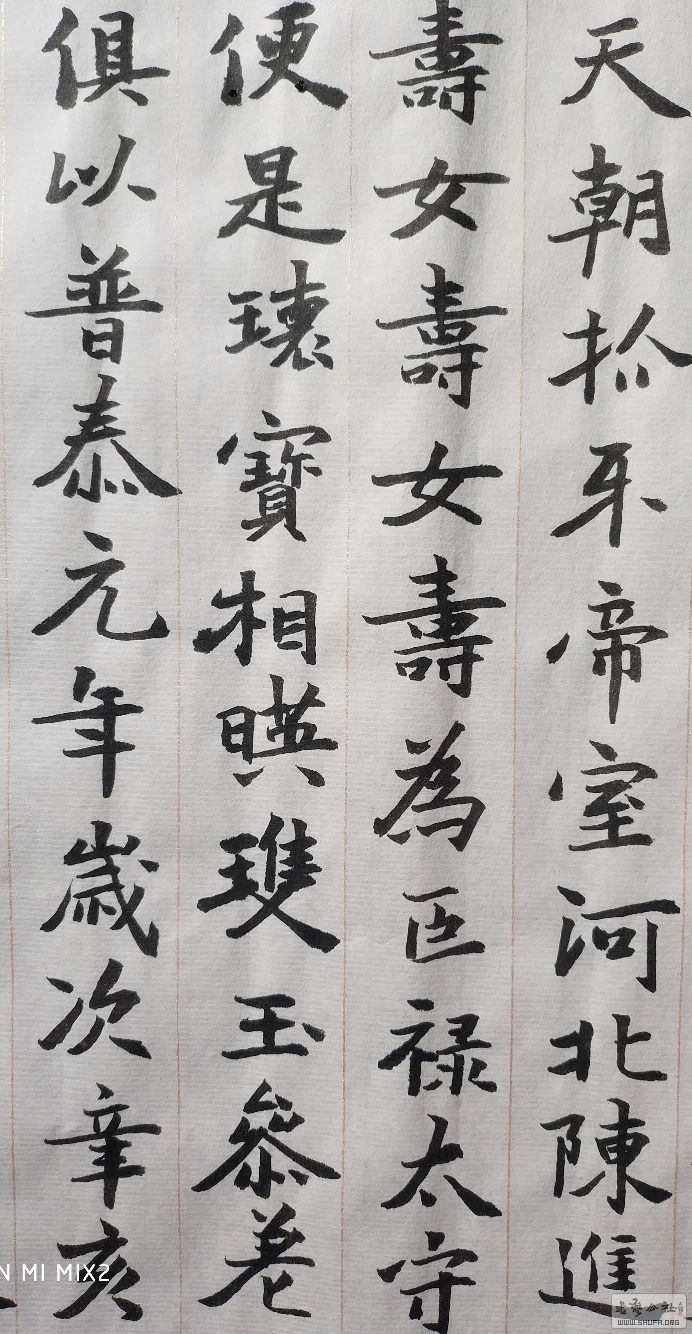 天朝抓牙帝室河北陳進
壽女壽女壽為巨禄太守
便是瓌寶相暎瓊玉參差
俱以普泰元年歲次辛亥
N MI MIX2
书艺公社
WWW.SHUFA.ORG